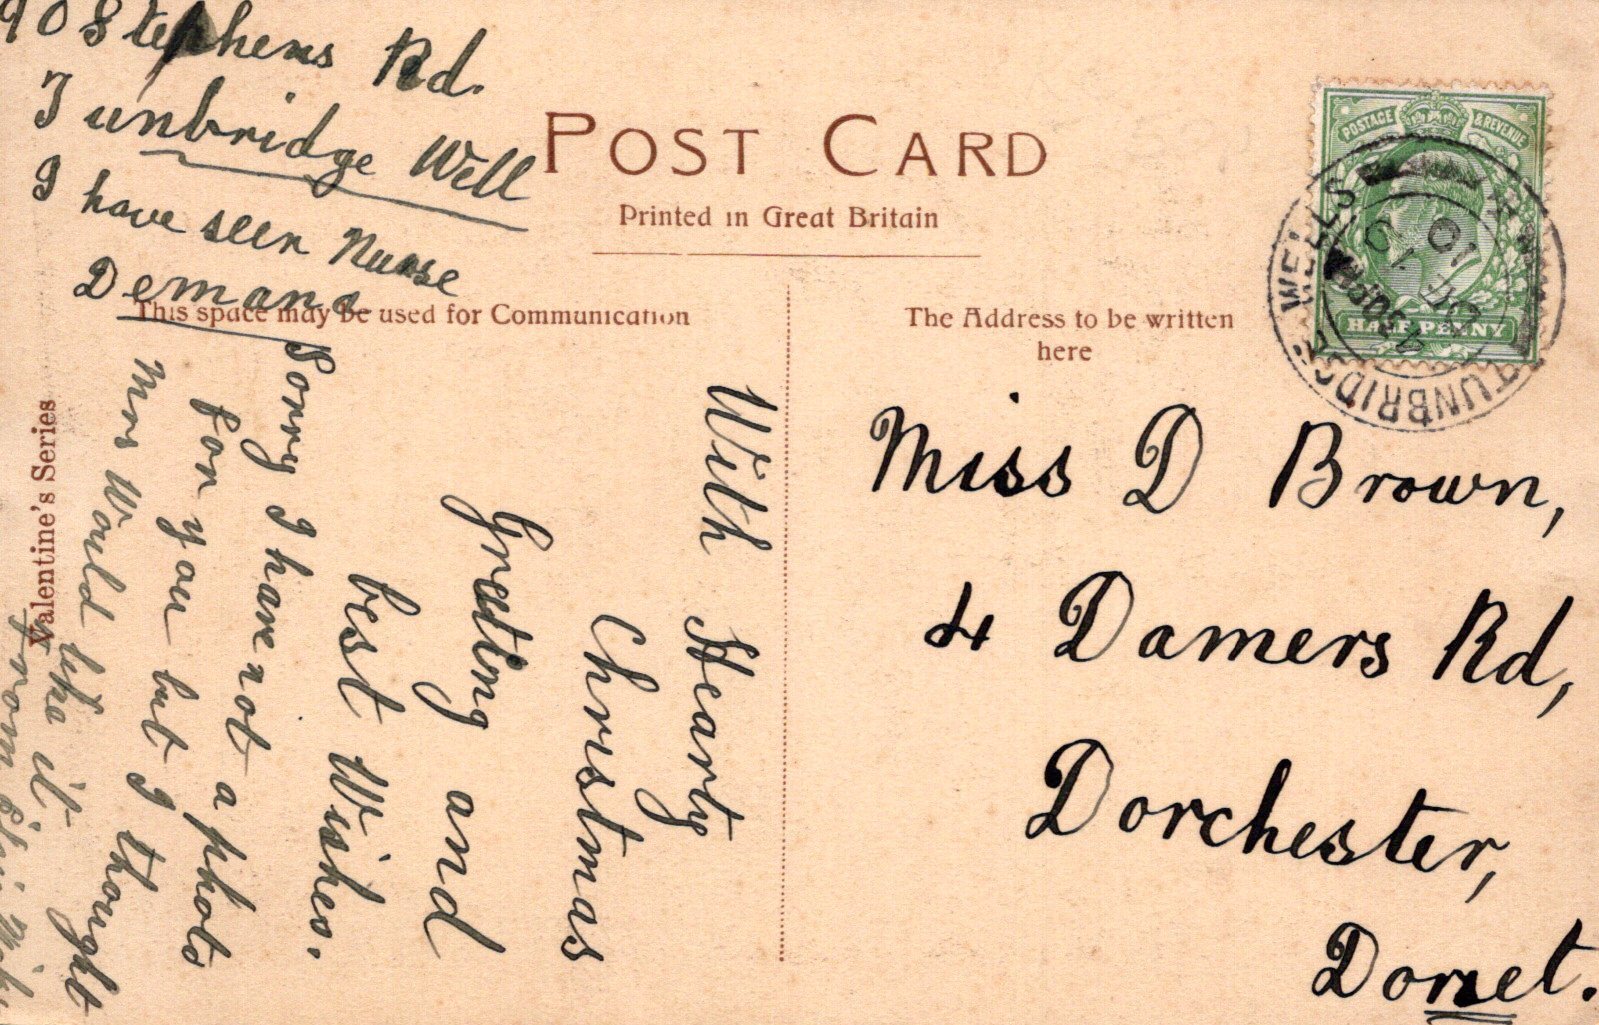 90 Stephens Rd.
Tunbridge Well
I have seen Nurse
Demana
POST CARD
Printed in Great Britain
This space may be used for Communication
The Address to be written
here
POSTAGE & REVENUE
HALF PENNY
TUNBRIDGE WELLS
Valentine's Series
With Hearty
Christmas
Greeting and
best Wishes.
Sorry I have not a photo
for you but I thought
Mrs Would like it
from
Miss D Brown,
4 Damers Rd,
Dorchester,
Dorset.